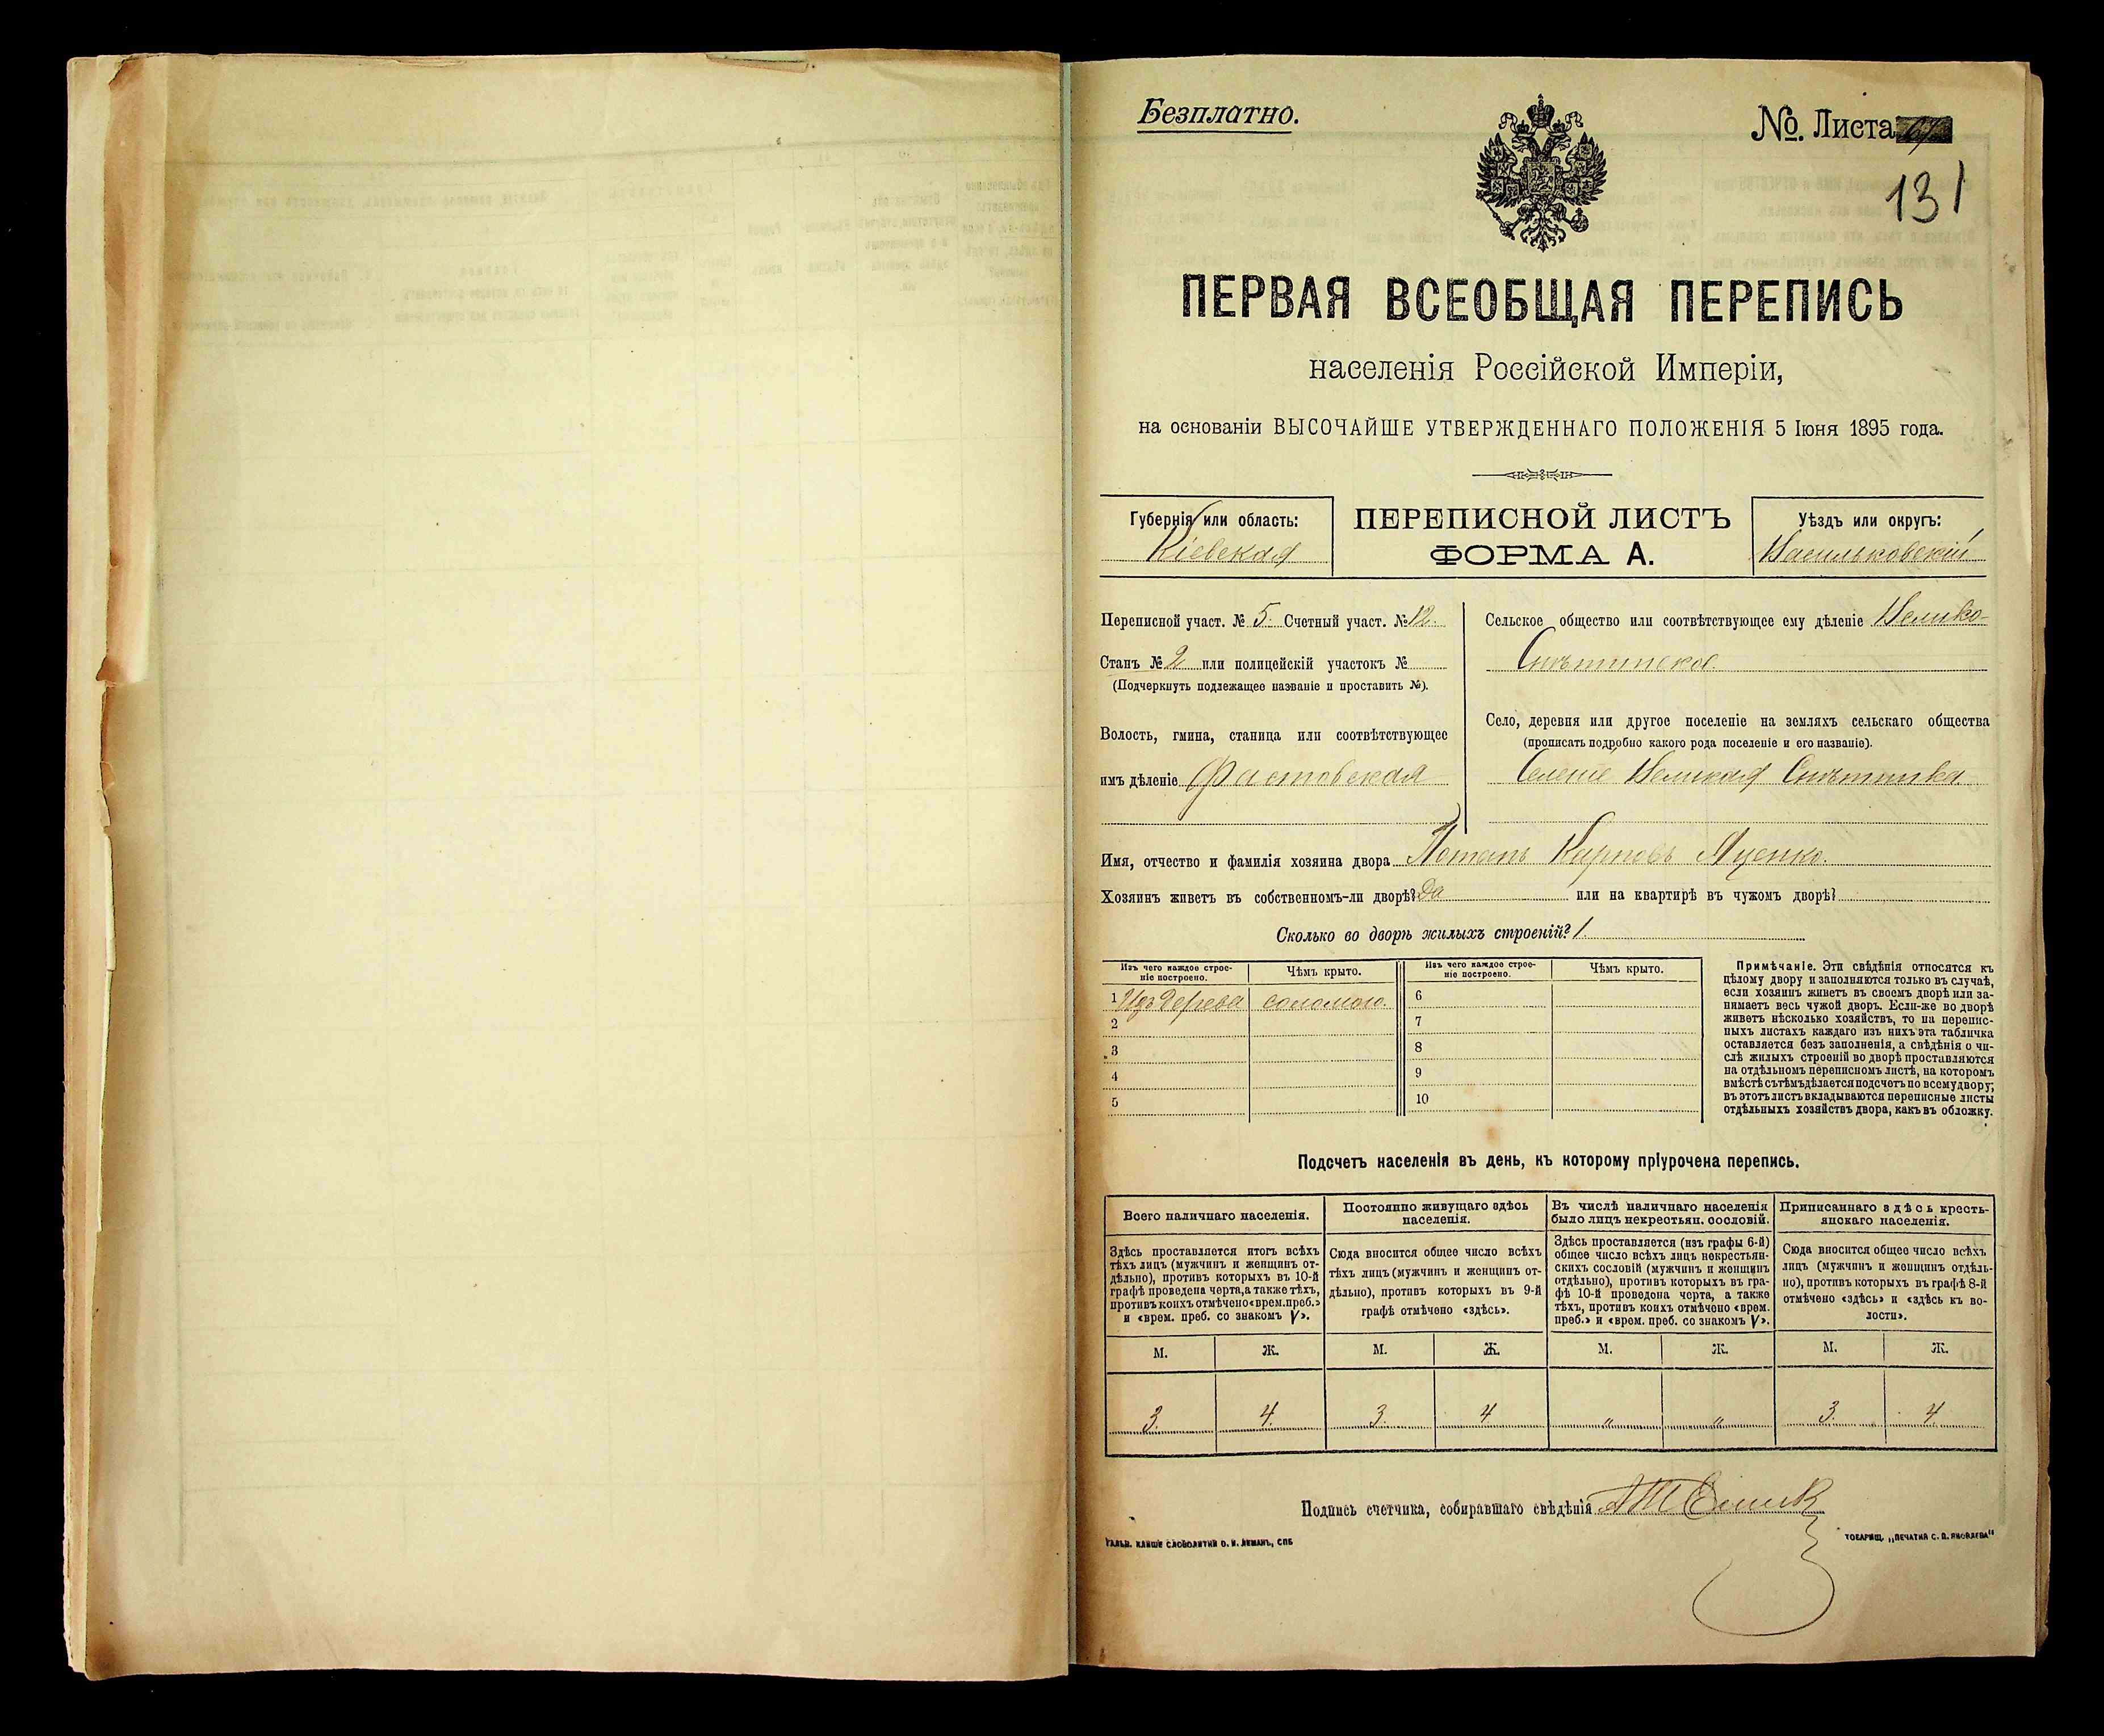 Безплатно.
№ Листа
131
ПЕРВАЯ ВСЕОБЩАЯ ПЕРЕПИСЬ
населенія Россійской Имперіи,
на основаніи ВЫСОЧАЙШЕ УТВЕРЖДЕННАГО ПОЛОЖЕНІЯ 5 Іюня 1895 года.
Губернія или область:
Кіевская
ПЕРЕПИСНОЙ ЛИСТЪ
ФОРМА А.
Уѣздъ или округъ:
Васильковскій
Переписной участ. № 5. Счетный участ. № 12.
Станъ № 2 или полицейскій участокъ №
(Подчеркнуть подлежащее названіе и проставить №).
Волость, гмина, станица или соотвѣтствующее
имъ дѣленіе Фастовская
Сельское общество или соотвѣтствующее ему дѣленіе Велико-
Снѣтинское.
Село, деревня или другое поселеніе на земляхъ сельскаго общества
(прописать подробно какого рода поселеніе и его названіе).
Селеніе Великая Снѣтинка.
Имя, отчество и фамилія хозяина двора Потапъ Карповъ Яценко.
Хозяинъ живетъ въ собственномъ-ли дворѣ? да или на квартирѣ въ чужомъ дворѣ?
Сколько во дворѣ жилыхъ строеній? 1.
Изъ чего каждое строе-
ніе построено.
Чѣмъ крыто.
Изъ чего каждое строе-
ніе построено.
Чѣмъ крыто.
1 Изъ дерева соломою. 6
2 7
3 8
4 9
5 10
Примѣчаніе. Эти свѣдѣнія относятся къ
цѣлому двору и заполняются только въ случаѣ,
если хозяинъ живетъ въ своемъ дворѣ или за-
нимаетъ весь чужой дворъ. Если-же во дворѣ
живетъ нѣсколько хозяйствъ, то на перепис-
ныхъ листахъ каждаго изъ нихъ эта табличка
оставляется безъ заполненія, а свѣдѣнія о чи-
слѣ жилыхъ строеній во дворѣ проставляются
на отдѣльномъ переписномъ листѣ, на которомъ
вмѣстѣ съ тѣмъ дѣлается подсчетъ по всему двору;
въ этотъ листъ вкладываются переписные листы
отдѣльныхъ хозяйствъ двора, какъ въ обложку.
Подсчетъ населенія въ день, къ которому пріурочена перепись.
Всего наличнаго населенія.
Здѣсь проставляется итогъ всѣхъ
тѣхъ лицъ (мужчинъ и женщинъ от-
дѣльно), противъ которыхъ въ 10-й
графѣ проведена черта, а также тѣхъ,
противъ коихъ отмѣчено «врем. преб.»
и «врем. преб. со знакомъ V».
Постоянно живущаго здѣсь
населенія.
Сюда вносится общее число всѣхъ
тѣхъ лицъ (мужчинъ и женщинъ от-
дѣльно), противъ которыхъ въ 9-й
графѣ отмѣчено «здѣсь».
Въ числѣ наличнаго населенія
было лицъ некрестьян. сословій.
Здѣсь проставляется (изъ графы 6-й)
общее число всѣхъ лицъ некрестьян-
скихъ сословій (мужчинъ и женщинъ
отдѣльно), противъ которыхъ въ гра-
фѣ 10-й проведена черта, а также
тѣхъ, противъ коихъ отмѣчено «врем.
преб.» и «врем. преб. со знакомъ V».
Приписаннаго здѣсь кресть-
янскаго населенія.
Сюда вносится общее число всѣхъ
лицъ (мужчинъ и женщинъ отдѣль-
но), противъ которыхъ въ графѣ 8-й
отмѣчено «здѣсь» и «здѣсь къ во-
лости».
М. Ж. М. Ж. М. Ж. М. Ж.
3. 4. 3. 4 " " 3. 4
Подпись счетчика, собиравшаго свѣдѣнія
ГАЛЬВ. КЛИШЕ СЛОВОЛИТНИ О. И. ЛЕМАНЪ, СПБ
ТОВАРИЩ. „ПЕЧАТНЯ С. П. ЯКОВЛЕВА"